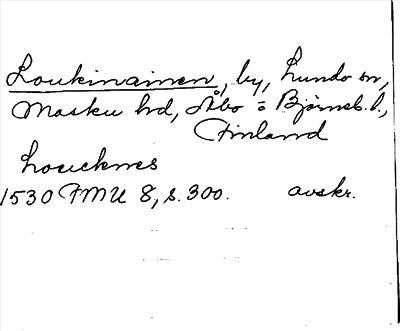 Loukinainen, by, Lundo sn,
Masku hd, Åbo o Björneb. l.,
Finland
Louckmes
1530 FMU 8, s. 300. avskr.